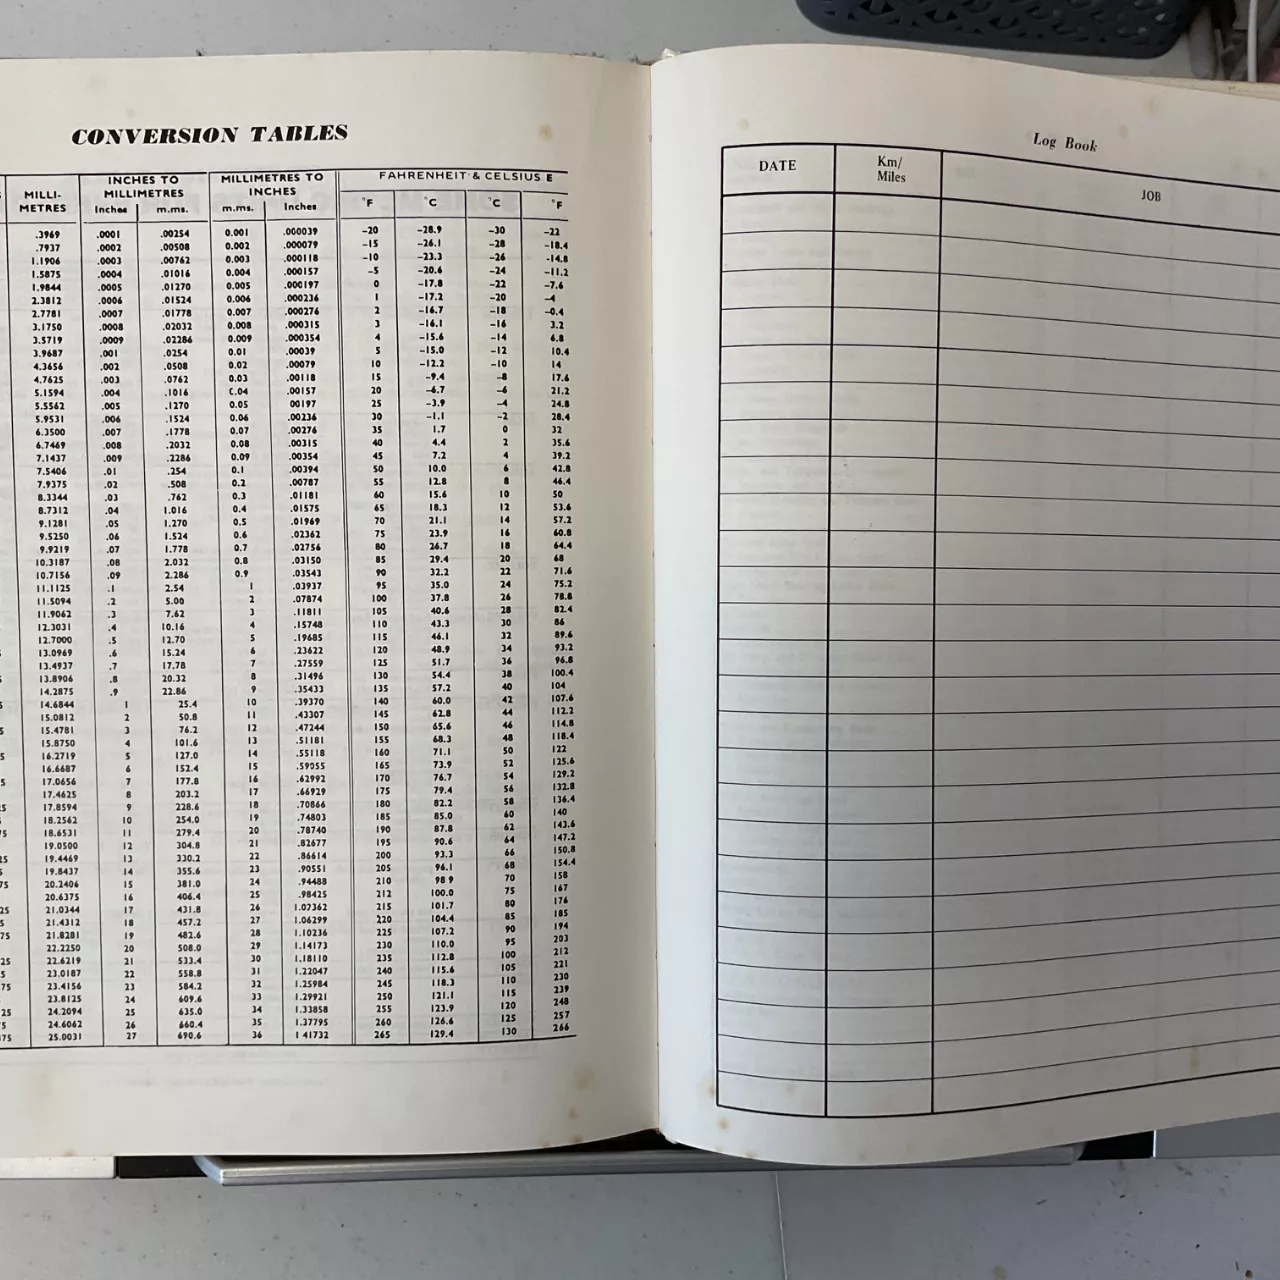 CONVERSION TABLES
MILLI-METRES INCHES TO MILLIMETRES MILLIMETRES TO INCHES FAHRENHEIT & CELSIUS E
Inches m.ms. m.ms. Inches °F °C °C °F
.3969 .0001 .00254 0.001 .000039 −20 −28.9 −30 −22
.7937 .0002 .00508 0.002 .000079 −15 −26.1 −28 −18.4
1.1906 .0003 .00762 0.003 .000118 −10 −23.3 −26 −14.8
1.5875 .0004 .01016 0.004 .000157 −5 −20.6 −24 −11.2
1.9844 .0005 .01270 0.005 .000197 0 −17.8 −22 −7.6
2.3812 .0006 .01524 0.006 .000236 1 −17.2 −20 −4
2.7781 .0007 .01778 0.007 .000276 2 −16.7 −18 −0.4
3.1750 .0008 .02032 0.008 .000315 3 −16.1 −16 3.2
3.5719 .0009 .02286 0.009 .000354 4 −15.6 −14 6.8
3.9687 .001 .0254 0.01 .00039 5 −15.0 −12 10.4
4.3656 .002 .0508 0.02 .00079 10 −12.2 −10 14
4.7625 .003 .0762 0.03 .00118 15 −9.4 −8 17.6
5.1594 .004 .1016 0.04 .00157 20 −6.7 −6 21.2
5.5562 .005 .1270 0.05 00197 25 −3.9 −4 24.8
5.9531 .006 .1524 0.06 .00236 30 −1.1 −2 28.4
6.3500 .007 .1778 0.07 .00276 35 1.7 0 32
6.7469 .008 .2032 0.08 .00315 40 4.4 2 35.6
7.1437 .009 .2286 0.09 .00354 45 7.2 4 39.2
7.5406 .01 .254 0.1 .00394 50 10.0 6 42.8
7.9375 .02 .508 0.2 .00787 55 12.8 8 46.4
8.3344 .03 .762 0.3 .01181 60 15.6 10 50
8.7312 .04 1.016 0.4 .01575 65 18.3 12 53.6
9.1281 .05 1.270 0.5 .01969 70 21.1 14 57.2
9.5250 .06 1.524 0.6 .02362 75 23.9 16 60.8
9.9219 .07 1.778 0.7 .02756 80 26.7 18 64.4
10.3187 .08 2.032 0.8 .03150 85 29.4 20 68
10.7156 .09 2.286 0.9 .03543 90 32.2 22 71.6
11.1125 .1 2.54 1 .03937 95 35.0 24 75.2
11.5094 .2 5.00 2 .07874 100 37.8 26 78.8
11.9062 .3 7.62 3 .11811 105 40.6 28 82.4
12.3031 .4 10.16 4 .15748 110 43.3 30 86
12.7000 .5 12.70 5 .19685 115 46.1 32 89.6
13.0969 .6 15.24 6 .23622 120 48.9 34 93.2
13.4937 .7 17.78 7 .27559 125 51.7 36 96.8
13.8906 .8 20.32 8 .31496 130 54.4 38 100.4
14.2875 .9 22.86 9 .35433 135 57.2 40 104
14.6844 1 25.4 10 .39370 140 60.0 42 107.6
15.0812 2 50.8 11 .43307 145 62.8 44 112.2
15.4781 3 76.2 12 .47244 150 65.6 46 114.8
15.8750 4 101.6 13 .51181 155 68.3 48 118.4
16.2719 5 127.0 14 .55118 160 71.1 50 122
16.6687 6 152.4 15 .59055 165 73.9 52 125.6
17.0656 7 177.8 16 .62992 170 76.7 54 129.2
17.4625 8 203.2 17 .66929 175 79.4 56 132.8
17.8594 9 228.6 18 .70866 180 82.2 58 136.4
18.2562 10 254.0 19 .74803 185 85.0 60 140
18.6531 11 279.4 20 .78740 190 87.8 62 143.6
19.0500 12 304.8 21 .82677 195 90.6 64 147.2
19.4469 13 330.2 22 .86614 200 93.3 66 150.8
19.8437 14 355.6 23 .90551 205 96.1 68 154.4
20.2406 15 381.0 24 .94488 210 98 9 70 158
20.6375 16 406.4 25 .98425 212 100.0 75 167
21.0344 17 431.8 26 1.02362 215 101.7 80 176
21.4312 18 457.2 27 1.06299 220 104.4 85 185
21.8281 19 482.6 28 1.10236 225 107.2 90 194
22.2250 20 508.0 29 1.14173 230 110.0 95 203
22.6219 21 533.4 30 1.18110 235 112.8 100 212
23.0187 22 558.8 31 1.22047 240 115.6 105 221
23.4156 23 584.2 32 1.25984 245 118.3 110 230
23.8125 24 609.6 33 1.29921 250 121.1 115 239
24.2094 25 635.0 34 1.33858 255 123.9 120 248
24.6062 26 660.4 35 1.37795 260 126.6 125 257
25.0031 27 690.6 36 1 41732 265 129.4 130 266
Log Book
DATE Km/ Miles JOB